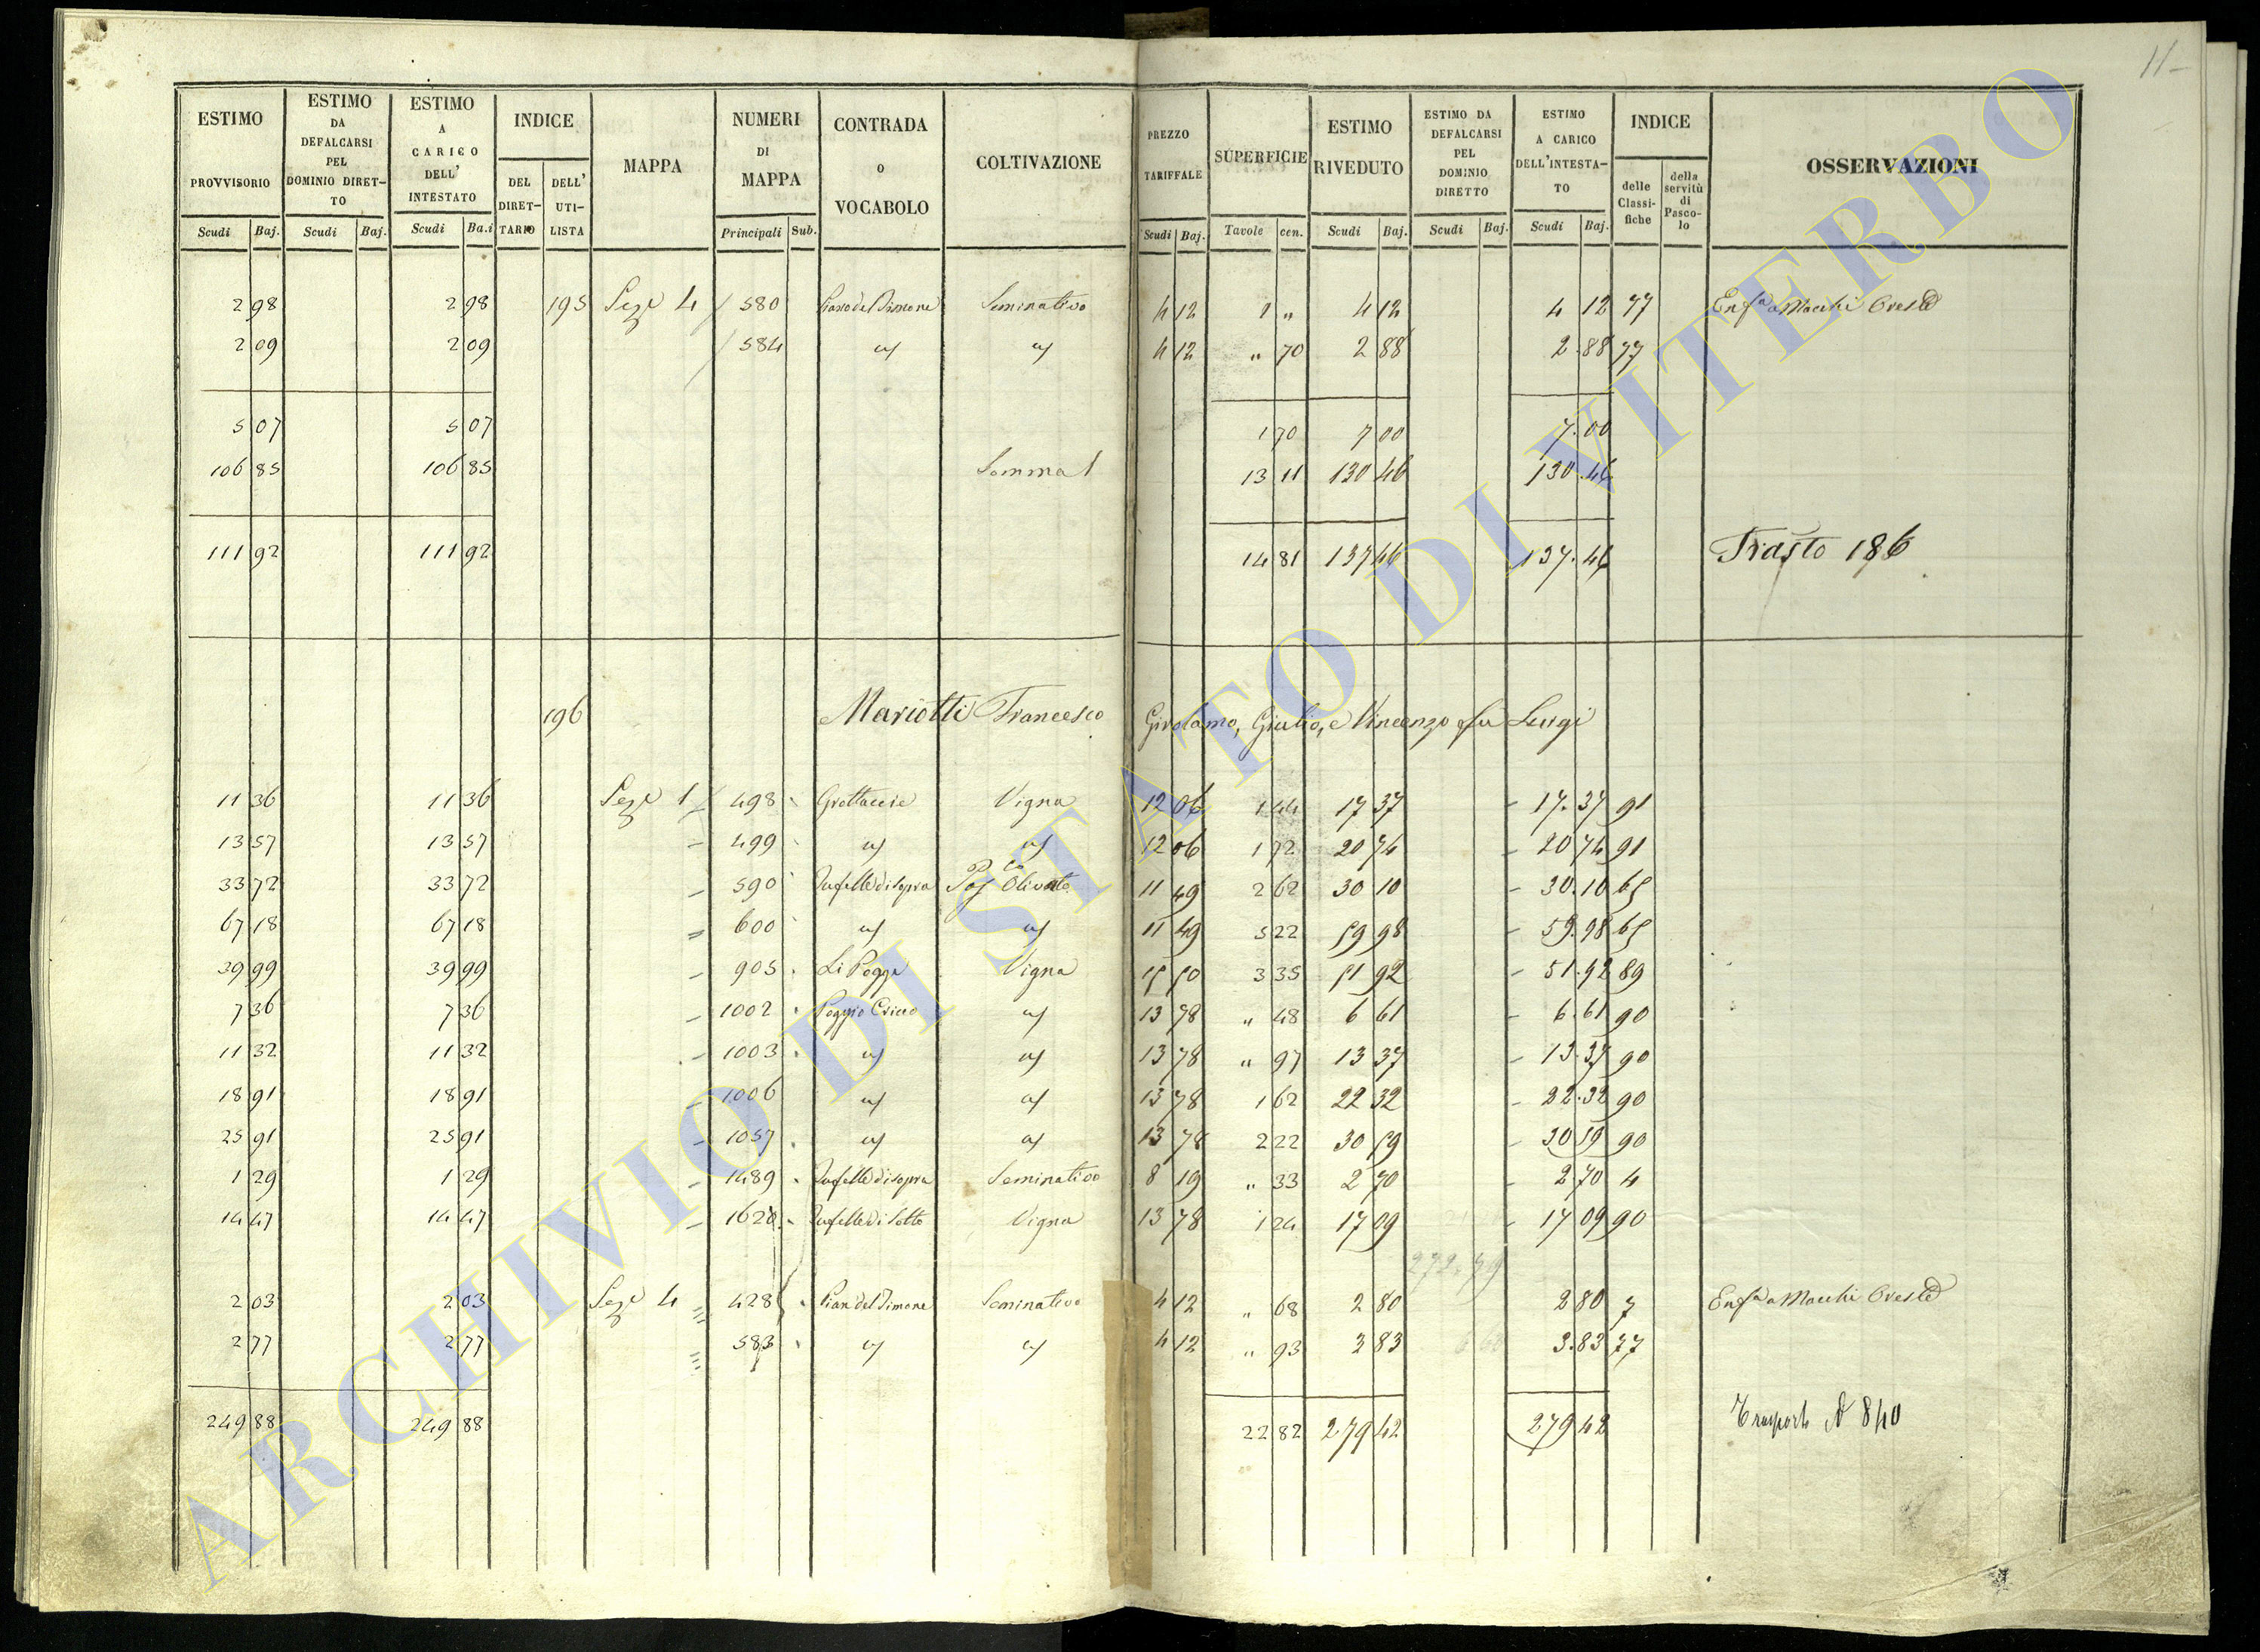 11-
ESTIMO PROVVISORIO Scudi Baj. ESTIMO DA DEFALCARSI PEL DOMINIO DIRET-TO Scudi Baj. ESTIMO A CARICO DELL' INTESTATO Scudi Ba.i INDICE DEL DIRET-TARIO DELL' UTI-LISTA MAPPA NUMERI DI MAPPA Principali Sub. CONTRADA o VOCABOLO COLTIVAZIONE PREZZO TARIFFALE Scudi Baj. SUPERFICIE Tavole cen. ESTIMO RIVEDUTO Scudi Baj. ESTIMO DA DEFALCARSI PEL DOMINIO DIRETTO Scudi Baj. ESTIMO A CARICO DELL'INTESTA-TO Scudi Baj. INDICE delle Classi-fiche della servitù di Pasco-lo OSSERVAZIONI
2 98 2 98 195 Seze 4 580 Seminativo 4 12 1 " 4 12 4 12 77 Enfa a Macchi Oreste
2 09 2 09 584 4 12 " 70 2 88 2.88 77
5 07 5 07 1 70 7 00 7.00
106 85 106 85 Somma 13 11 130 46 130.46
111 92 111 92 14 81 137 46 137.46 Trasto 186
196 Mariotti Francesco Girolamo, Giulio, e Vincenzo fu Luigi
11 36 11 36 Seze 1 498 Grottaccie Vigna 12 06 1 44 17 37 17.37 91
13 57 13 57 499 12 06 1 72 20 74 20 74 91
33 72 33 72 590 Tufelle di sopra Olivato 11 49 2 62 30 10 30.10 65
67 18 67 18 600 11 49 5 22 59 98 59.98 65
39 99 39 99 905 Li Poggi Vigna 15 50 3 35 51 92 51.92 89
7 36 7 36 1002 Poggio 13 78 " 48 6 61 6.61 90
11 32 11 32 1003 13 78 " 97 13 37 13.37 90
18 91 18 91 1006 13 78 1 62 22 32 22.32 90
25 91 25 91 1057 13 78 2 22 30 59 30 59 90
1 29 1 29 1489 Tufelle di sopra Seminativo 8 19 " 33 2 70 2 70 4
14 47 14 47 162 Tufelle di Sotto Vigna 13 78 1 24 17 09 17 09 90
272.79
2 03 2 03 Seze 4 428 Pian del Dimone Seminativo 4 12 " 68 2 80 2 80 7 Enfa a Macchi Oreste
2 77 2 77 583 4 12 " 93 3 83 3.83 77
249 88 249 88 22 82 279 42 279 42 Trasporto N 840
ARCHIVIO DI STATO DI VITERBO